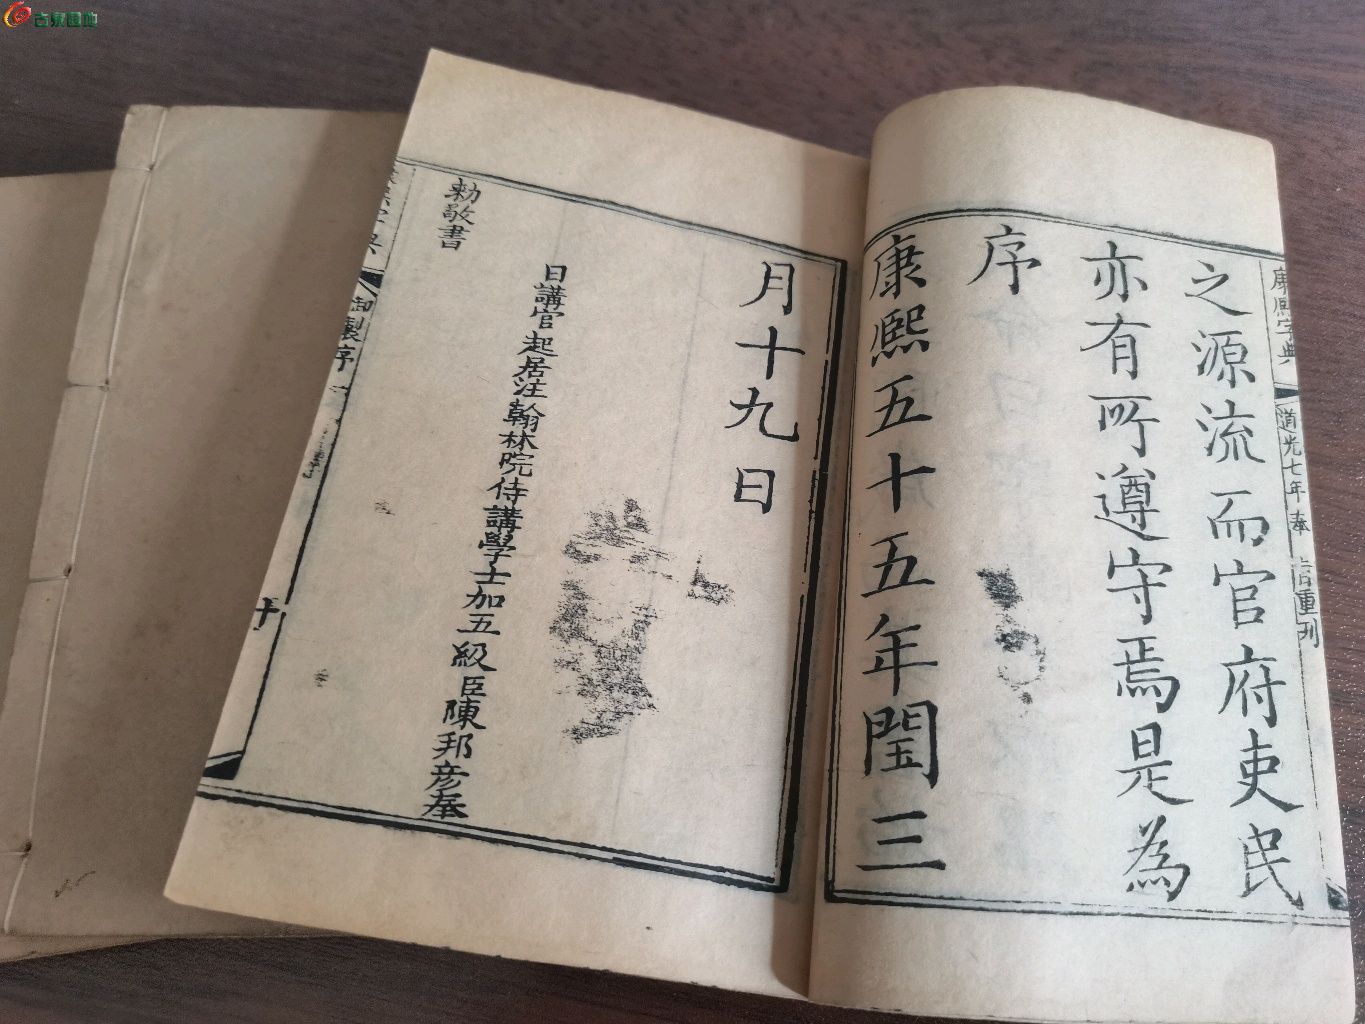 古泉園地
康熙字典
道光七年奉旨重刊
之源流而官府吏民
亦有所遵守焉是為
序
康熙五十五年閏三
月十九日
日講官起居注翰林院侍講學士加五級臣陳邦彦奉
勅敬書
御製序
十